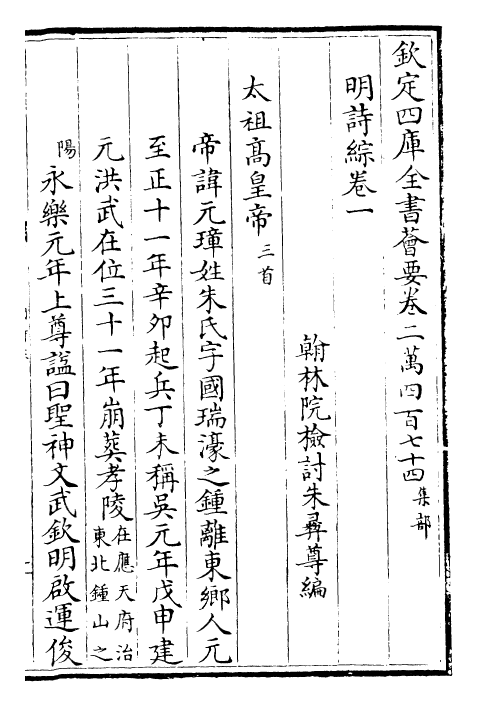 欽定四庫全書薈要卷二萬四百七十四 集部
明詩綜卷一
翰林院檢討朱彝尊編
太祖高皇帝 三首
帝諱元璋姓朱氏字國瑞濠之鍾離東鄉人元
至正十一年辛夘起兵丁未稱吳元年戊申建
元洪武在位三十一年崩葬孝陵 在應天府治東北鍾山之
陽 永樂元年上尊諡曰聖神文武欽明啟運俊